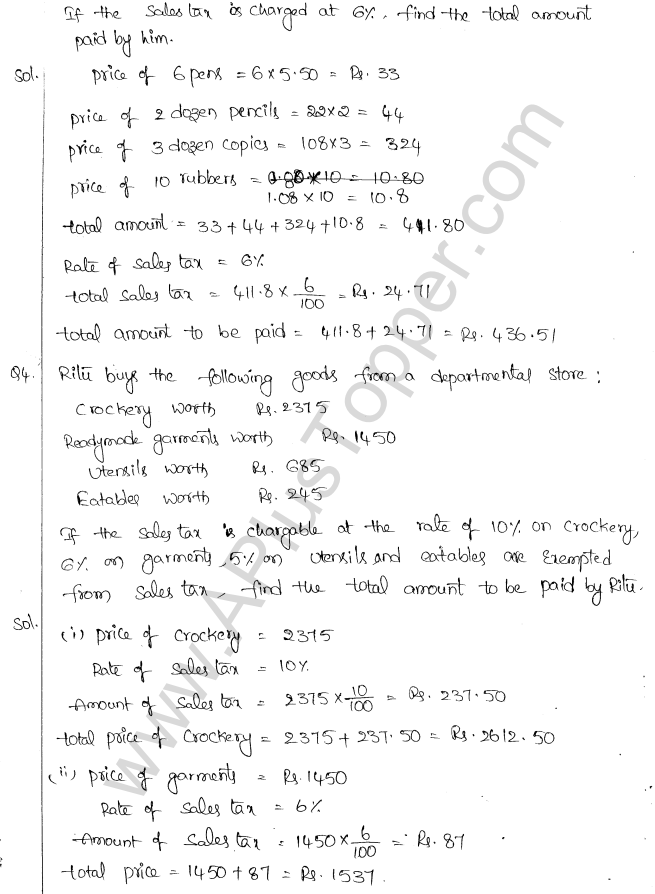 If the sales tax is charged at 6%, find the total amount
paid by him.
Sol. price of 6 pens = 6 × 5.50 = Rs. 33
price of 2 dozen pencils = 22×2 = 44
price of 3 dozen copies = 108×3 = 324
price of 10 rubbers = 1.08 × 10 = 10.80
1.08 × 10 = 10.8
total amount = 33 + 44 + 324 + 10.8 = 411.80
Rate of sales tax = 6%
total sales tax = 411.8 × 6/100 = Rs. 24.71
total amount to be paid = 411.8 + 24.71 = Rs. 436.51
Q4. Ritu buys the following goods from a departmental store :
Crockery worth Rs. 2375
Readymade garments worth Rs. 1450
Utensils worth Rs. 685
Eatables worth Rs. 245
If the sales tax is chargable at the rate of 10% on crockery,
6% on garments, 5% on utensils and eatables are Exempted
from sales tax, find the total amount to be paid by Ritu.
Sol. (i) price of crockery = 2375
Rate of sales tax = 10%
Amount of sales tax = 2375 × 10/100 = Rs. 237.50
total price of crockery = 2375 + 237.50 = Rs. 2612.50
(ii) price of garments = Rs. 1450
Rate of sales tax = 6%
Amount of sales tax = 1450 × 6/100 = Rs. 87
total price = 1450 + 87 = Rs. 1537.
www.APlusTopper.com